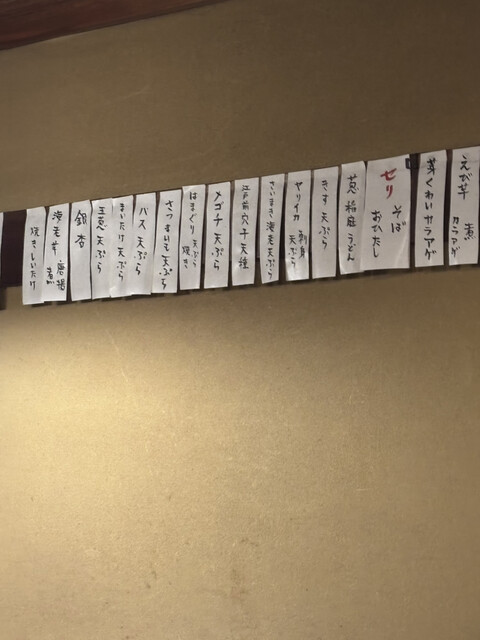 えび芋 煮
カラアゲ
芽くわいカラアゲ
セリ そば
おひたし
葱稲庭うどん
きす天ぷら
ヤリイカ 刺身
天ぷら
さいまき海老天ぷら
江戸前穴子天種
メゴチ天ぷら
はまぐり 天ぷら
焼き
さつまいも天ぷら
バス天ぷら
まいたけ天ぷら
玉葱天ぷら
銀杏
海老芋 唐揚
煮
焼きしいたけ